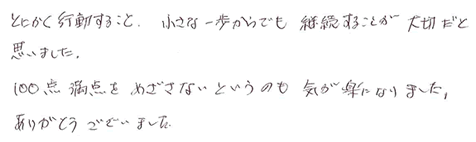 とにかく行動すること。小さな一歩からでも継続することが大切だと
思いました。
100点満点をめざさないというのも気が楽になりました。
ありがとうございました。